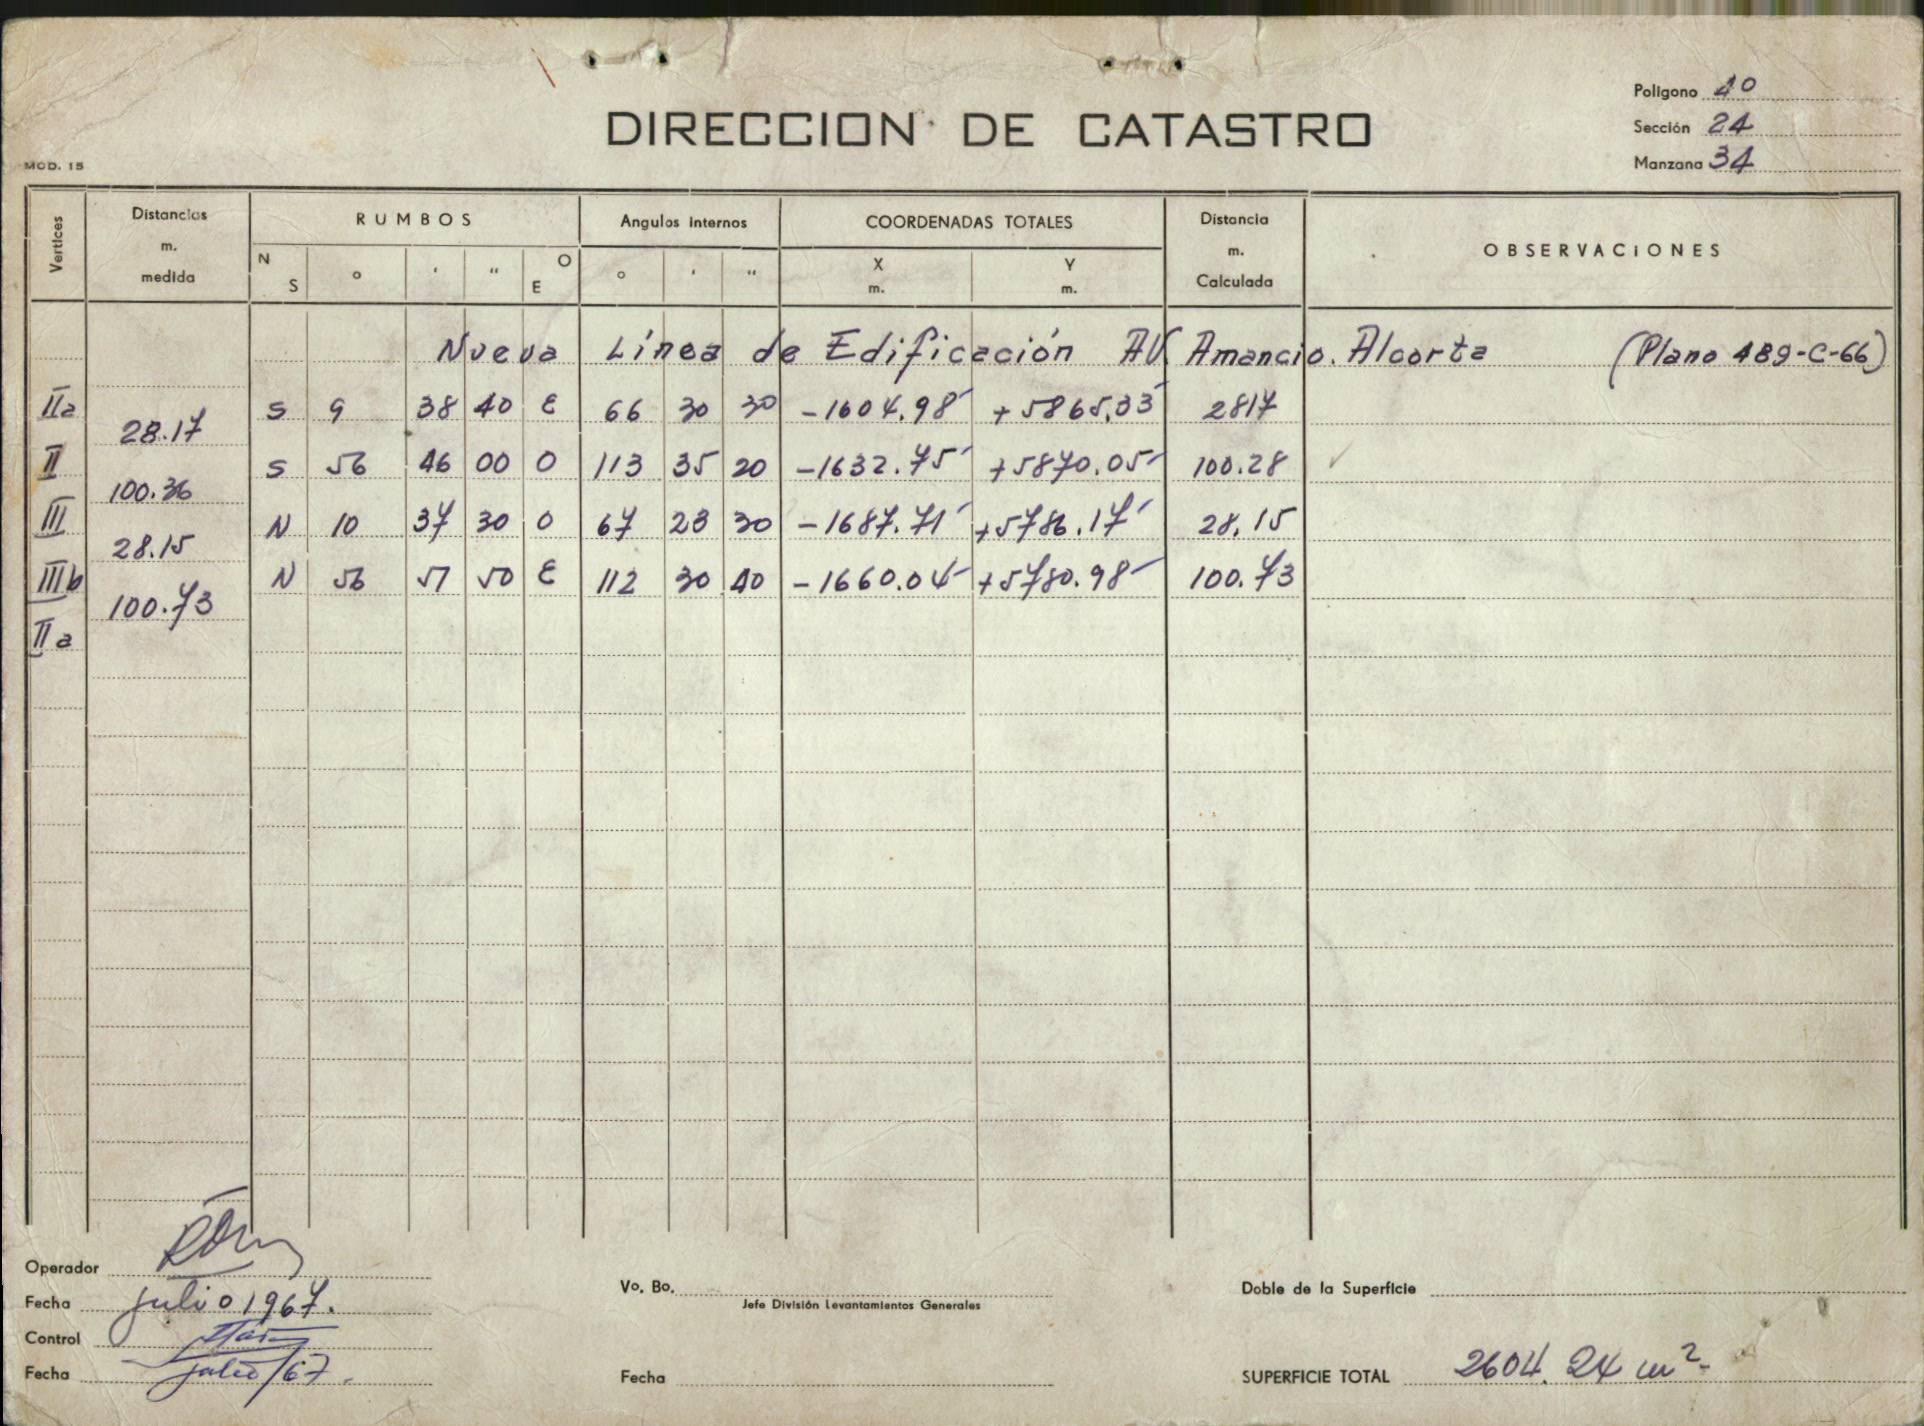 Polígono 40
DIRECCION DE CATASTRO
Sección 24
MOD. 15
Manzana 34
Vertices
Distancias m. medida
RUMBOS
Angulos internos
COORDENADAS TOTALES
Distancia m. Calculada
OBSERVACIONES
N S ° ' " O E
° ' "
X m.
Y m.
Nueva Línea de Edificación AV. Amancio. Alcorta (Plano 489-C-66)
IIa S 9 38 40 E 66 30 30 -1604.98 +5865.33 2817
28.17
II S 56 46 00 O 113 35 20 -1632.75 +5870.05 100.28
100.36
III N 10 37 30 O 67 23 30 -1687.71 +5786.17 28.15
28.15
IIIb N 56 51 50 E 112 30 40 -1660.04 +5780.98 100.73
100.73
IIa
Operador
Fecha julio 1967.
Control
Fecha julio/67.
Vo. Bo.
Jefe División Levantamientos Generales
Fecha
Doble de la Superficie
SUPERFICIE TOTAL 2604.24 m2-